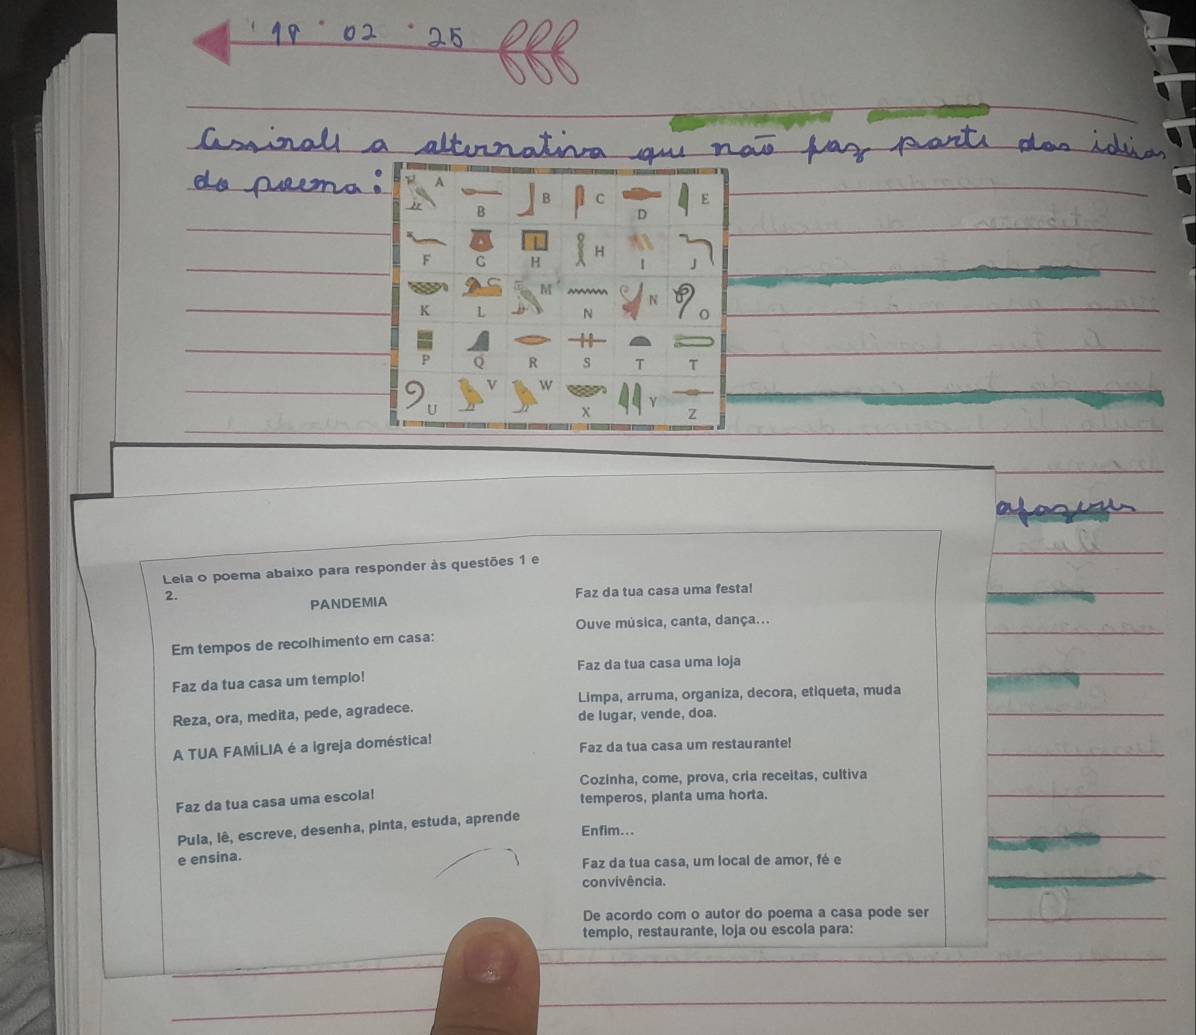 19 02 25
Assinale a alternativa que não faz parte das ideias
do poema:
A B B C D E
F G H H I J
K L M N N O
P Q R S T T
U V W X Y Z
afazeres
Leia o poema abaixo para responder às questões 1 e
2.
PANDEMIA
Em tempos de recolhimento em casa:
Faz da tua casa um templo!
Reza, ora, medita, pede, agradece.
A TUA FAMÍLIA é a igreja doméstica!
Faz da tua casa uma escola!
Pula, lê, escreve, desenha, pinta, estuda, aprende
e ensina.
Faz da tua casa uma festa!
Ouve música, canta, dança...
Faz da tua casa uma loja
Limpa, arruma, organiza, decora, etiqueta, muda
de lugar, vende, doa.
Faz da tua casa um restaurante!
Cozinha, come, prova, cria receitas, cultiva
temperos, planta uma horta.
Enfim...
Faz da tua casa, um local de amor, fé e
convivência.
De acordo com o autor do poema a casa pode ser
templo, restaurante, loja ou escola para: